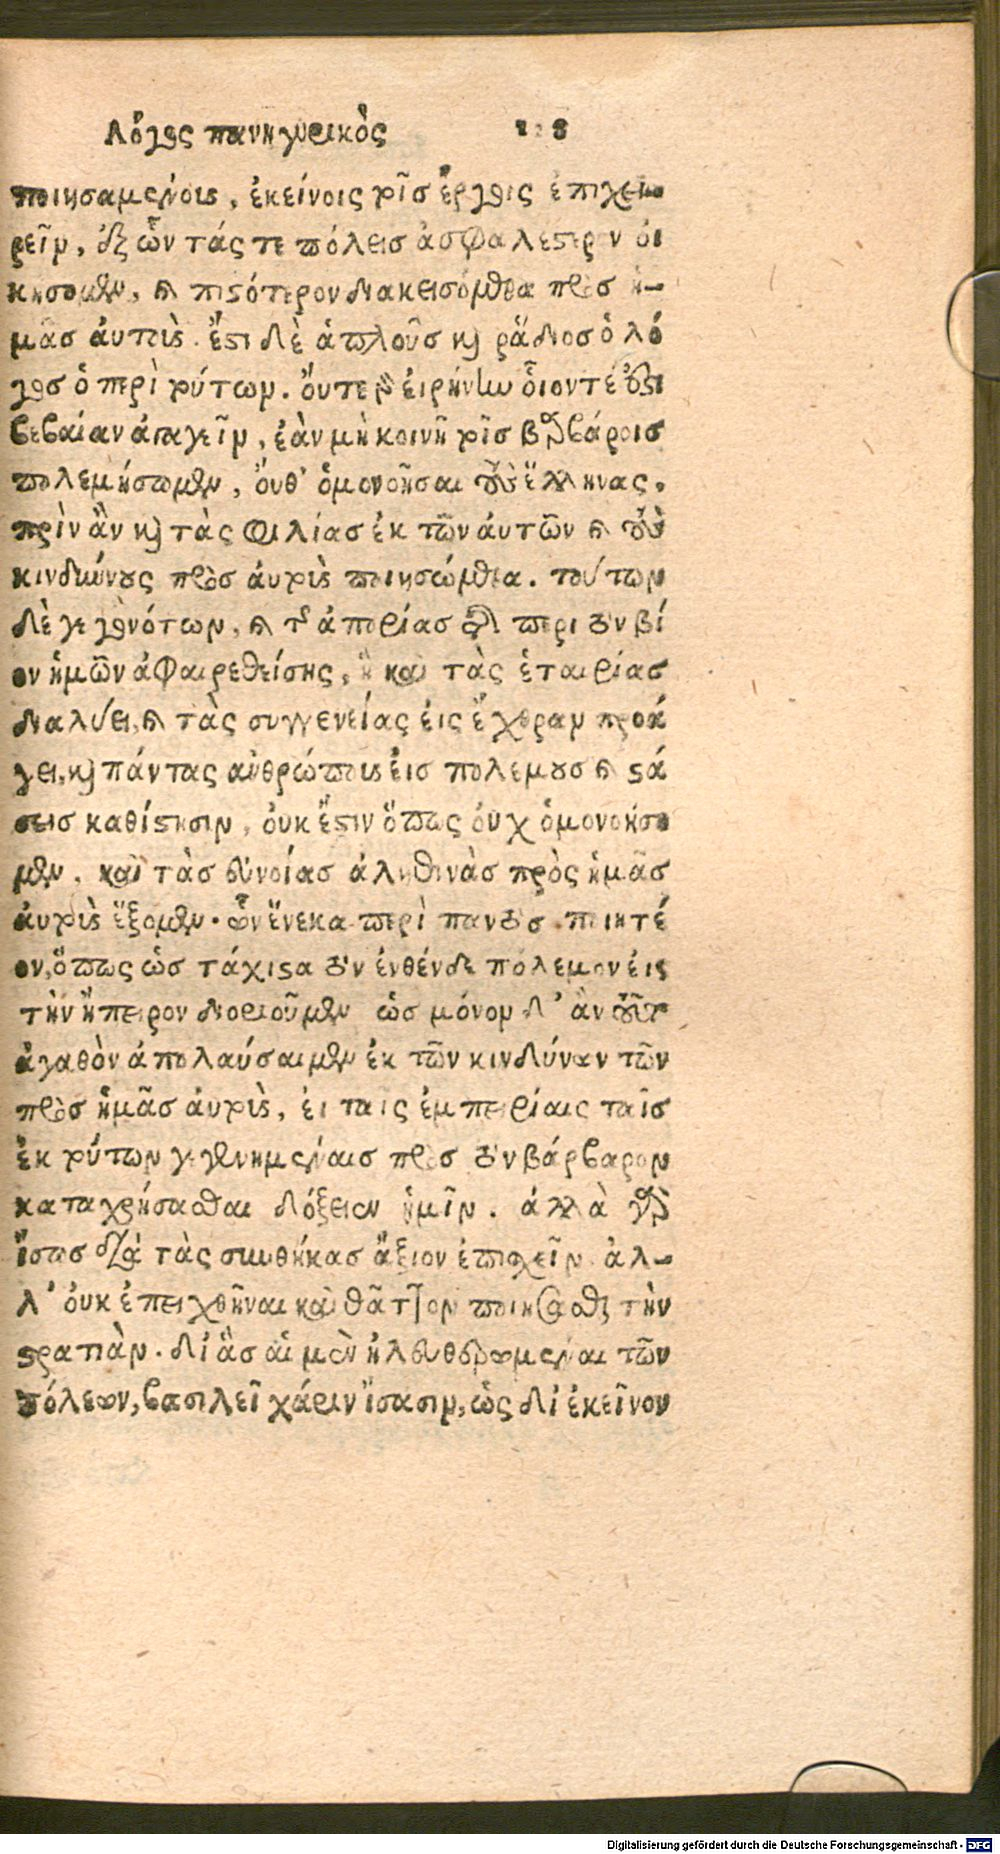 Λόγος πανηγυρικὸς
ποιησαμένους, ἐκείνοις τοῖσ ἔργοις ἐπιχει-
ρεῖν, ἐξ ὧν τάς τε πόλεισ ἀσφαλέστερον οἰ
κήσομεν, καὶ πιστότερον διακεισόμεθα πρὸσ ἡ-
μᾶσ ἀυτούς. ἔστι δὲ ἁπλοῦσ καὶ ῥάδιοσ ὁ λό
γοσ ὁ περὶ τούτων. ὄυτε γὰρ ἐιρήνην ὅιοντέ ἐστι
βεβαίαν ἀπαγεῖν, ἐὰν μὴ κοινῇ τοῖσ βαρβάροισ
πολεμήσωμεν, ὄυθ' ὁμονοῆσαι τοὺς ἕλληνας,
πρὶν ἂν καὶ τὰς φιλίασ ἐκ τῶν ἀυτῶν καὶ τοὺς
κινδύνους πρὸσ ἀυτοὺς ποιησώμεθα. τούτων
δὲ γεγονότων, καὶ τῆς ἀπορίασ τῆς περὶ τὸν βί
ον ἡμῶν ἀφαιρεθείσης, ἣ καὶ τὰς ἑταιρίασ
διαλύει, καὶ τὰς συγγενείας ἐις ἔχθραν προά
γει, καὶ πάντας ἀνθρώπους ἐισ πολέμουσ καὶ στά
σεισ καθίστησιν, ὀυκ ἔστιν ὅπως ὀυχ ὁμονοήσο
μεν. καὶ τὰσ ἐυνοίασ ἀληθινὰσ πρὸς ἡμᾶσ
ἀυτοὺς ἕξομεν. ὧν ἕνεκα περὶ παντὸσ ποιητέ
ον, ὅπως ὡσ τάχιστα τὸν ἐνθένδε πόλεμον ἐις
τὴν ἤπειρον διοριοῦμεν ὡσ μόνον δ' ἂν τοῦτ
ἀγαθὸν ἀπολαύσαιμεν ἐκ τῶν κινδύνων τῶν
πρὸσ ἡμᾶσ ἀυτοὺς, ἐι ταῖς ἐμπειρίαις ταῖσ
ἐκ τούτων γεγενημέναισ πρὸσ τὸν βάρβαρον
καταχρήσασθαι δόξειεν ἡμῖν. ἀλλὰ γὰρ
ἴσωσ διὰ τὰς συνθήκασ ἄξιον ἐπισχεῖν ἀλ-
λ' ὀυκ ἐπειχθῆναι καὶ θᾶττον ποιήσασθαι τὴν
στρατιὰν. δἰ ἃσ ἁι μὲν ἠλευθερωμέναι τῶν
πόλεων, βασιλεῖ χάριν ἴσασιν, ὡς δἰ ἐκεῖνον
Digitalisierung gefördert durch die Deutsche Forschungsgemeinschaft - DFG